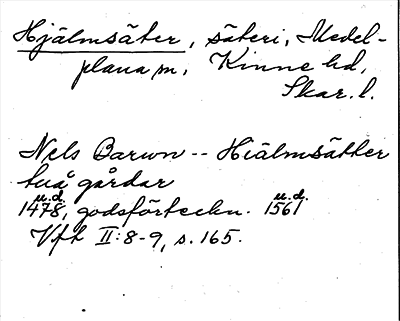 Hjälmsäter, säteri, Medel-
plana sn, Kinne hd,
Skar. l.
Nels Barwn -- Hiälmsätter
tuå gårdar
u.d. u.d.
1478, godsförteckn. 1561
Vft II:8-9, s. 165.